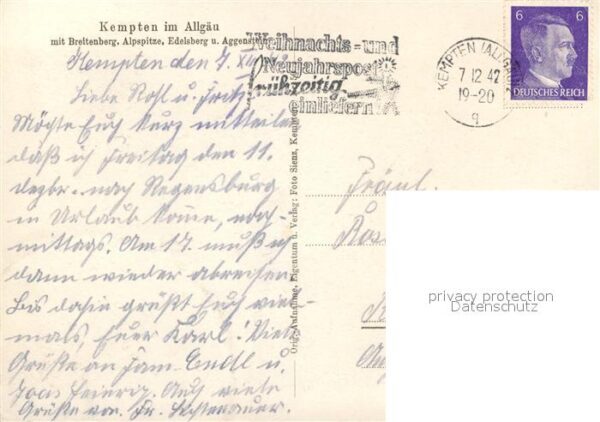 Kempten im Allgäu
mit Breitenberg, Alpspitze, Edelsberg u. Aggenstein
Weihnachts- und
Neujahrspost
frühzeitig
einliefern
KEMPTEN (ALLGÄU)
7.12.42
19-20
q
6 6
DEUTSCHES REICH
Kempten den 7. XII.
Liebe Rosl u. Fritz
Möchte Euch kurz mitteilen
daß ich Freitag den 11.
dezbr. nach Regensburg
in Urlaub komme, nach-
mittags. Am 17. muß ich
dann wieder abreisen
Bis dahin grüßt Euch viel-
mals, Euer Karl! Viel
Grüße an Fam. Endl u.
Feierig. Auch viele
Grüße von Fr.
Orig.-Aufnahme, Eigentum u. Verlag: Foto Sienz, Kempten
Fräul.
Ros
privacy protection
Datenschutz